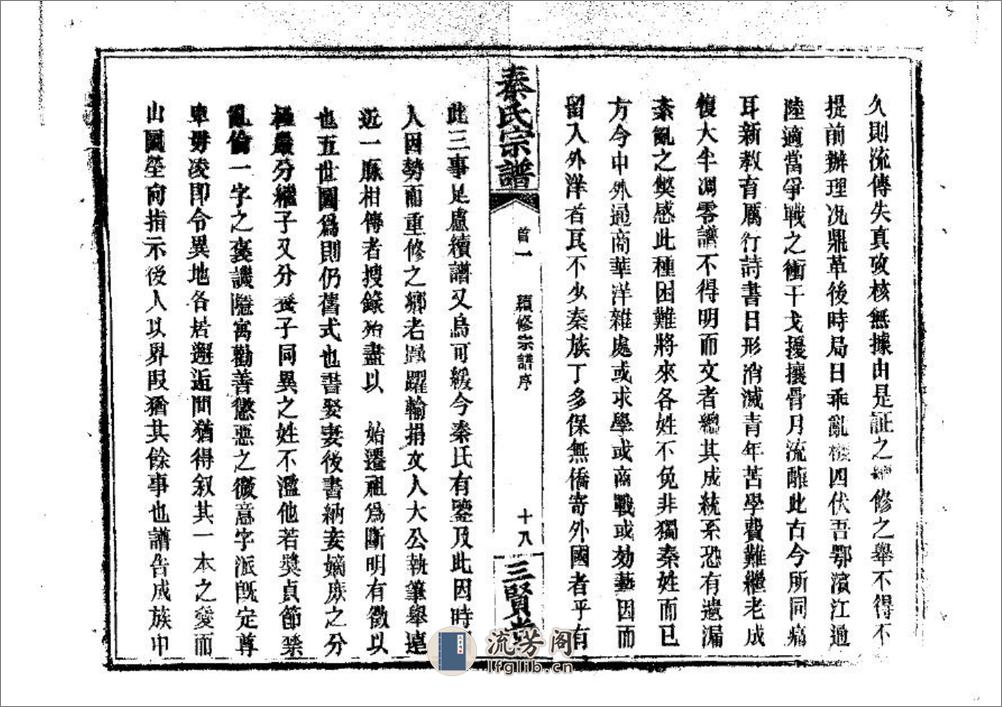 久則流傳失真攷核無據由是証之續修之舉不得不
提前辦理况鼎革後時局日乖亂機四伏吾鄂濱江通
陸適當爭戰之衝干戈擾攘骨月流離此古今所同痛
耳新教育厲行詩書日形消滅青年苦學費難繼老成
復大半凋零譜不得明而文者總其成統系恐有遺漏
紊亂之獘感此種困難將來各姓不免非獨秦姓而已
方今中外通商華洋雜處或求學或商戰或効藝因而
留入外洋者民不少秦族丁多保無僑寄外國者乎有
秦氏宗譜
首一
續修宗譜序
十八
三賢堂
此三事是慮續譜又烏可緩今秦氏有鑒及此因時
人因勢而重修之鄉老踴躍輸捐文人大公執筆舉遠
近一脈相傳者搜錄殆盡以 始遷祖為斷明有徵以
也五世圖為則仍舊式也書娶妻後書納妾嫡庶之分
極嚴分繼子又分養子同異之姓不濫他若獎貞節禁
亂倫一字之褒譏隱寓勸善懲惡之微意字派既定尊
卑毋凌即令異地各居邂逅間猶得叙其一本之愛而
山圖塋向指示後人以界叚猶其餘事也譜告成族中
流芳阁
lfglib.cn